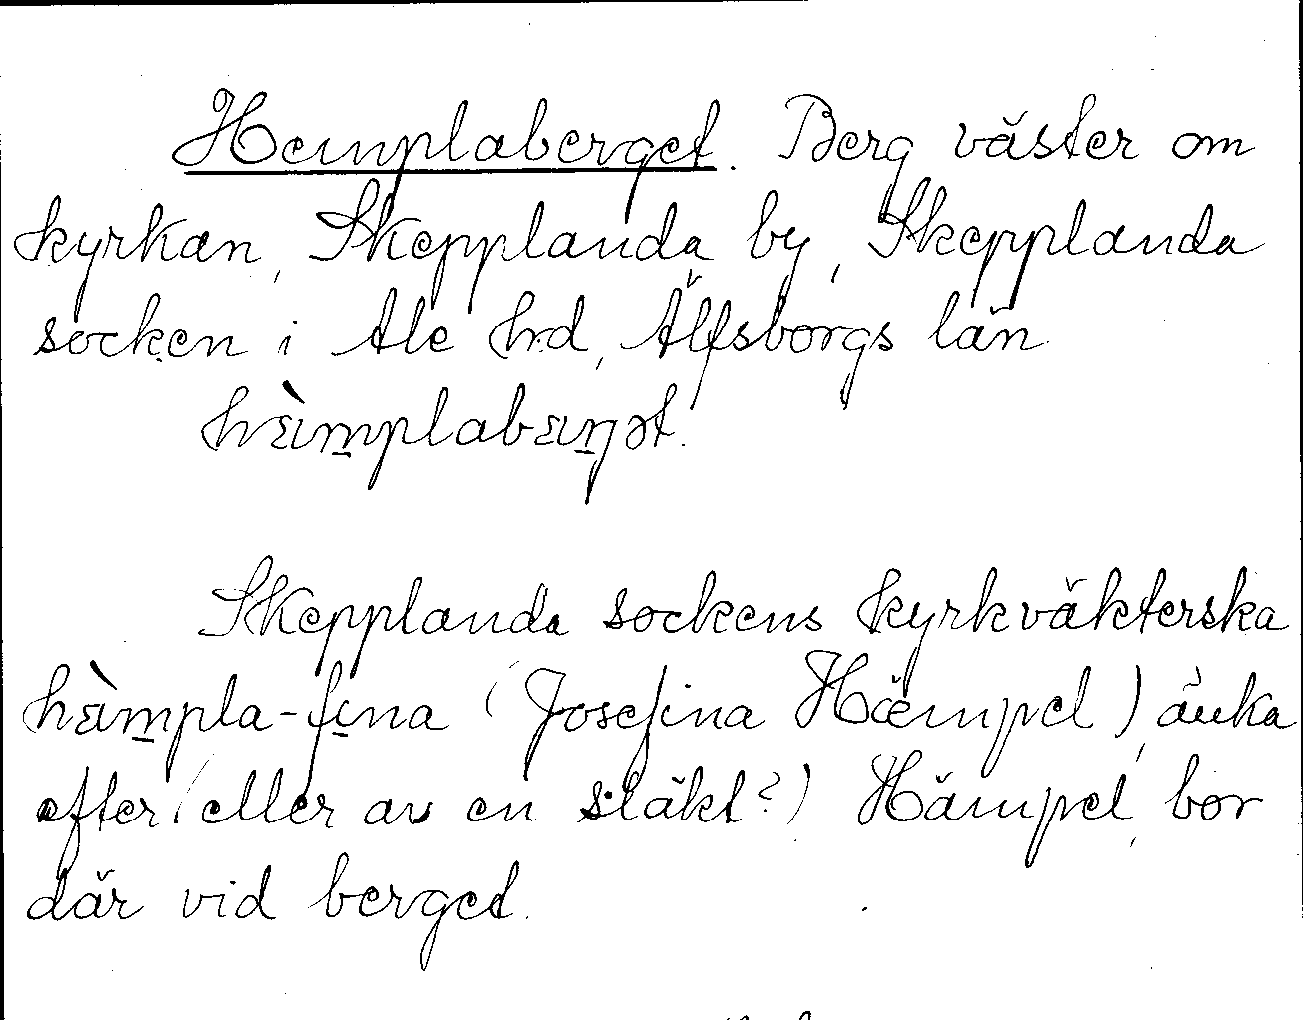 Hemplaberget. Berg väster om
kyrkan, Skepplanda by, Skepplanda
socken i Ale hrd, Älfsborgs län
Skepplanda sockens kyrkväkterska
hàmpla-fina (Josefina Hæmpel), änka
efter (eller av en släkt?) Hämpel, bor
där vid berget.